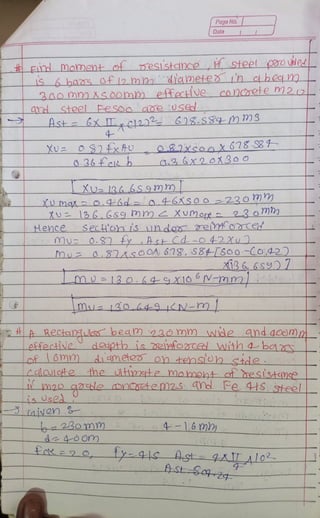 Page No.
Date
* Find moment of resistance, if steel provided
is 6 bars of 12 mm diameter in a beam
300 mm x 500 mm effective concrete m20
and steel Fe500 are used
→ Ast = 6 x π/4 x (12)² = 678.584 mm3
Xu = 0.87 fy Ast / 0.36 fck b = 0.87 x 500 x 678.584 / 0.36 x 20 x 300
Xu = 136.659 mm
Xu max = 0.46d = 0.46 x 500 = 230 mm
Xu = 136.659 mm < Xu max = 230 mm
Hence section is under reinforced
mu = 0.87 fy . Ast (d - 0.42 xu)
mu = 0.87 x 500 x 678.584 [500 - (0.42)
x 136.659)]
mu = 130.649 x 10⁶ N-mm
mu = 130.649 KN-m
2 # A Rectangular beam 230 mm wide and 400mm
effective depth is reinforced with 4 bars
of 16mm diameter on tension side.
calculate the ultimate moment of resistance
if m20 grade concrete and Fe 415 steel
is used.
→ Given :-
b = 230 mm 4 - 16 mm
d = 400m
fck = 20, fy = 415 Ast = 4 x π/4 x 16²
Ast = 804.24